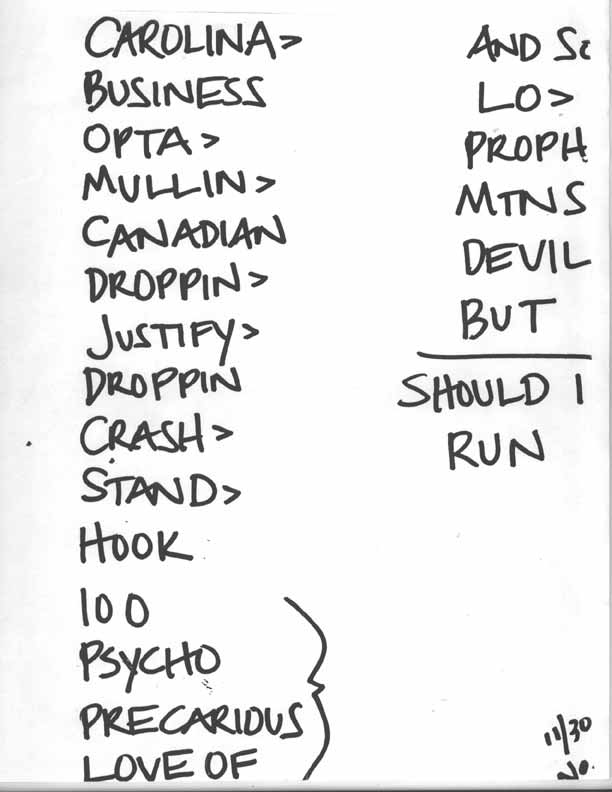 CAROLINA >
BUSINESS
OPTA >
MULLIN >
CANADIAN
DROPPIN >
JUSTIFY >
DROPPIN
CRASH >
STAND >
HOOK
100
PSYCHO
PRECARIOUS
LOVE OF
AND
LO >
PROPH
MTNS
DEVIL
BUT
SHOULD I
RUN
11/30